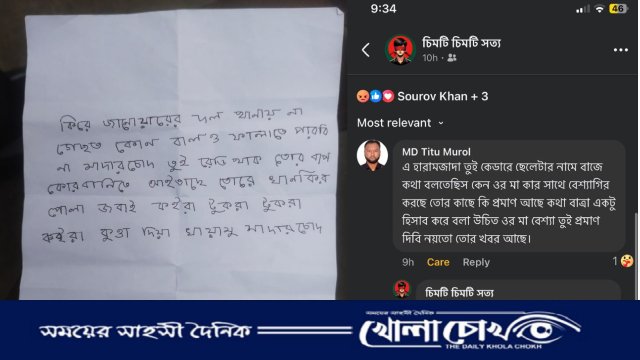 কিরে জানোয়ারের দল থানায় না
গেছত কোন বাল ও ফালাতে পারবি
না মাদারচোদ তুই রেডি থাক তোর বাপ
কোরবানিতে আইতাছে তোরে খানকির
পোলা জবাই কইরা টুকরা টুকরা
কইরা কুত্তা দিয়া খাওয়ামু মাদারচোদ
9:34
46
চিমটি চিমটি সত্য
10h
Sourov Khan + 3
Most relevant
MD Titu Murol
এ হারামজাদা তুই কেডারে ছেলেটার নামে বাজে
কথা বলতেছিস কেন ওর মা কার সাথে বেশ্যাগির
করছে তোর কাছে কি প্রমাণ আছে কথা বাত্রা একটু
হিসাব করে বলা উচিত ওর মা বেশ্যা তুই প্রমাণ
দিবি নয়তো তোর খবর আছে।
9h Care Reply 1
চিমটি চিমটি সত্য
সময়ের সাহসী দৈনিক
খোলা চোখ
THE DAILY KHOLA CHOKH